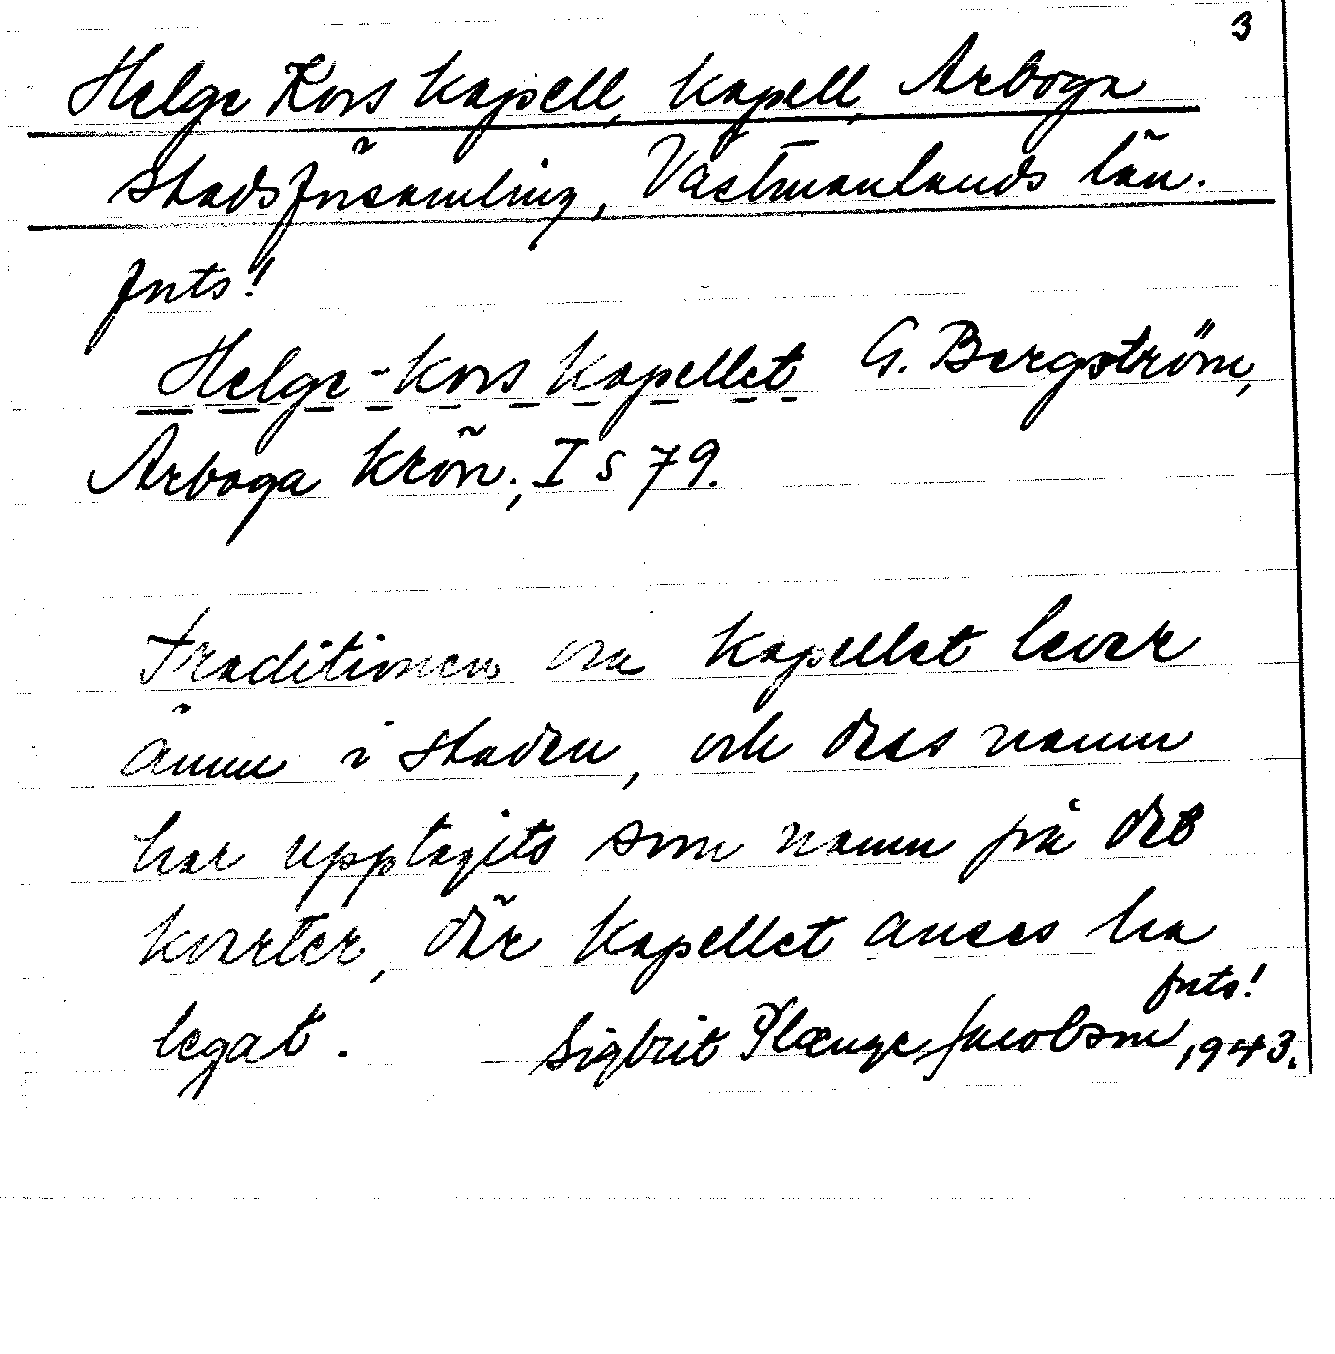 3
Helge Kors kapell, kapell, Arboga
stadsförsamling, Västmanlands län.
forts!
Helge-Kors kapellet G. Bergström,
Arboga krön., I s 79.
Traditionen om kapellet lever
ännu i staden, och dess namn
har upptagits som namn på det
kvarter, där kapellet anses ha
legat.
forts!
Sigbrit Plænge Jacobson, 1943.